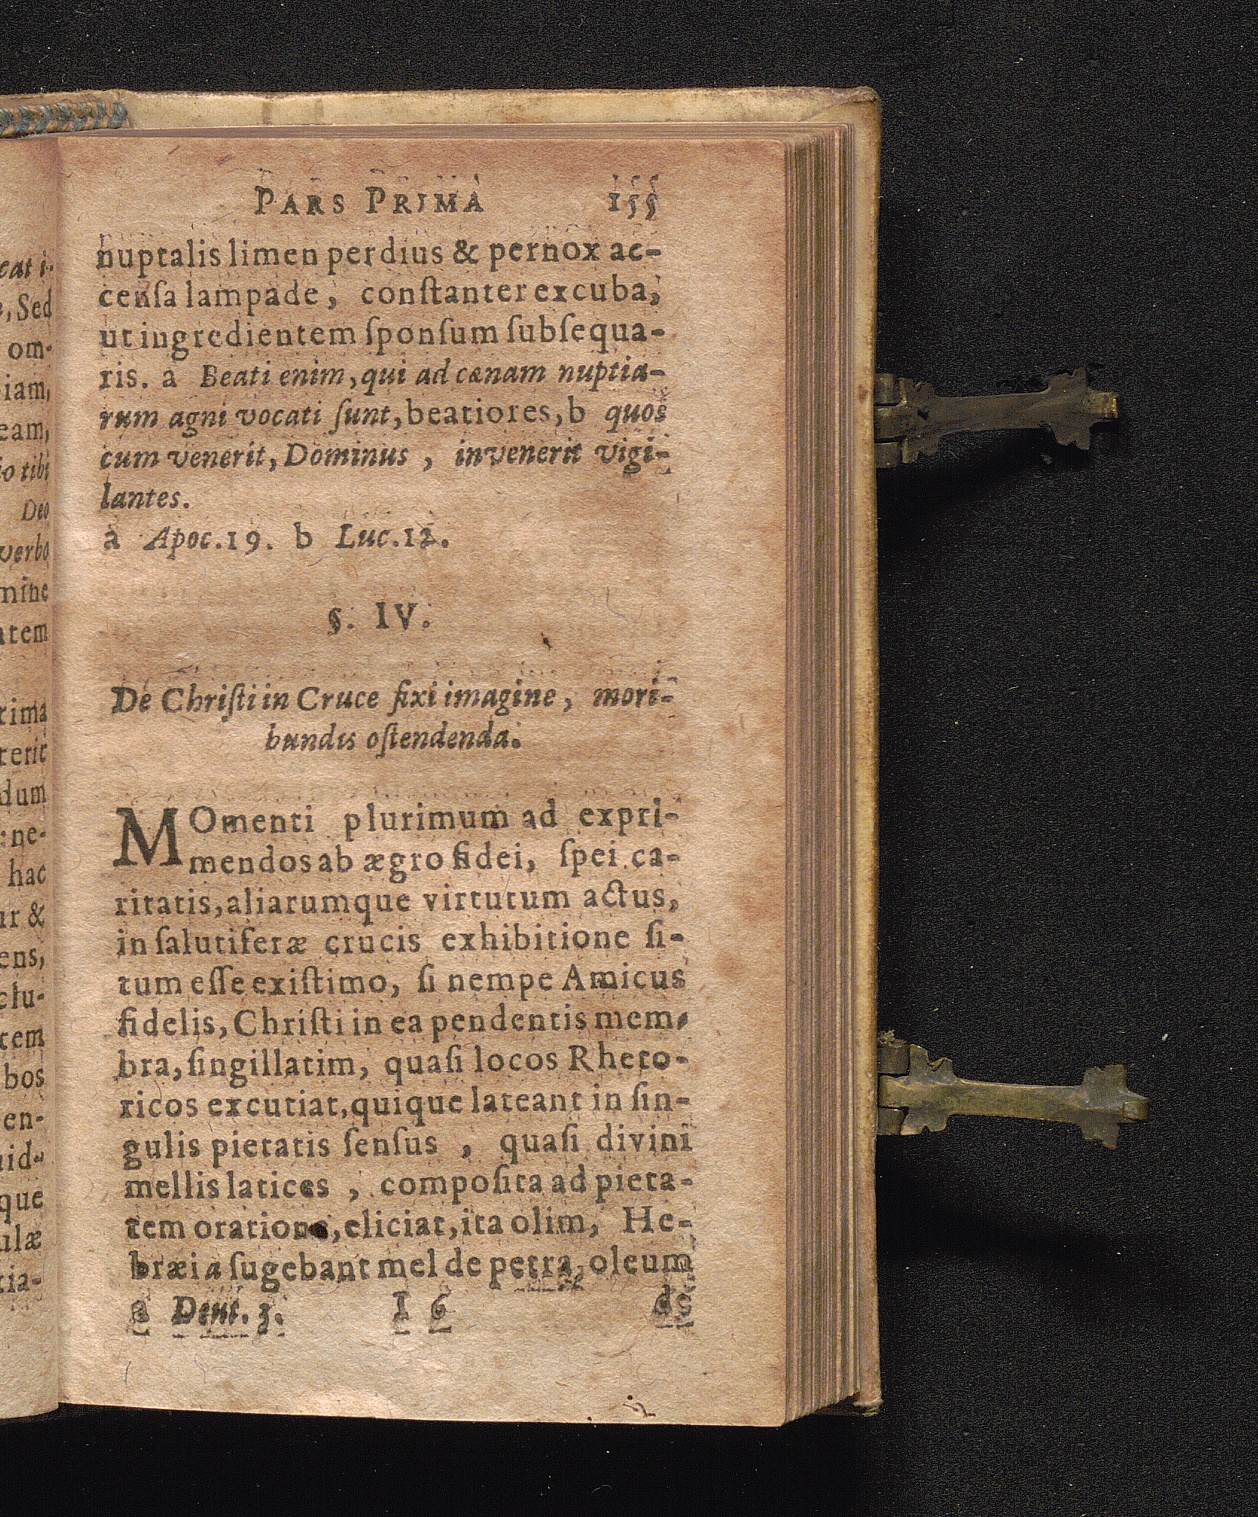 PARS PRIMA 155
nuptalis limen perdius & pernox ac-
censa lampade, constanter excuba,
ut ingredientem sponsum subsequa-
ris. a Beati enim, qui ad cænam nuptia-
rum agni vocati sunt, beatiores, b quos
cum venerit, Dominus, invenerit vigi-
lantes.
a Apoc. 19. b Luc. 12.
§. IV.
De Christi in Cruce fixi imagine, mori-
bundis ostendenda.
MOmenti plurimum ad expri-
mendos ab ægro fidei, spei ca-
ritatis, aliarumque virtutum actus,
in salutiferæ crucis exhibitione si-
tum esse existimo, si nempe Amicus
fidelis, Christi in ea pendentis mem-
bra, singillatim, quasi locos Rheto-
ricos excutiat, quique lateant in sin-
gulis pietatis sensus, quasi divini
mellis latices, composita ad pieta-
tem oratione, eliciat, ita olim, He-
bræi a sugebant mel de petra, oleum
a Deut. 3. I 6 de
eat i-
, Sed
om-
iam,
eam,
io tibi
Deo
verbo
mine
atem
rima
terit
dum
ne-
hac
ur &
ens,
clu-
tem
bos
en-
uid-
que
ulæ
tia-